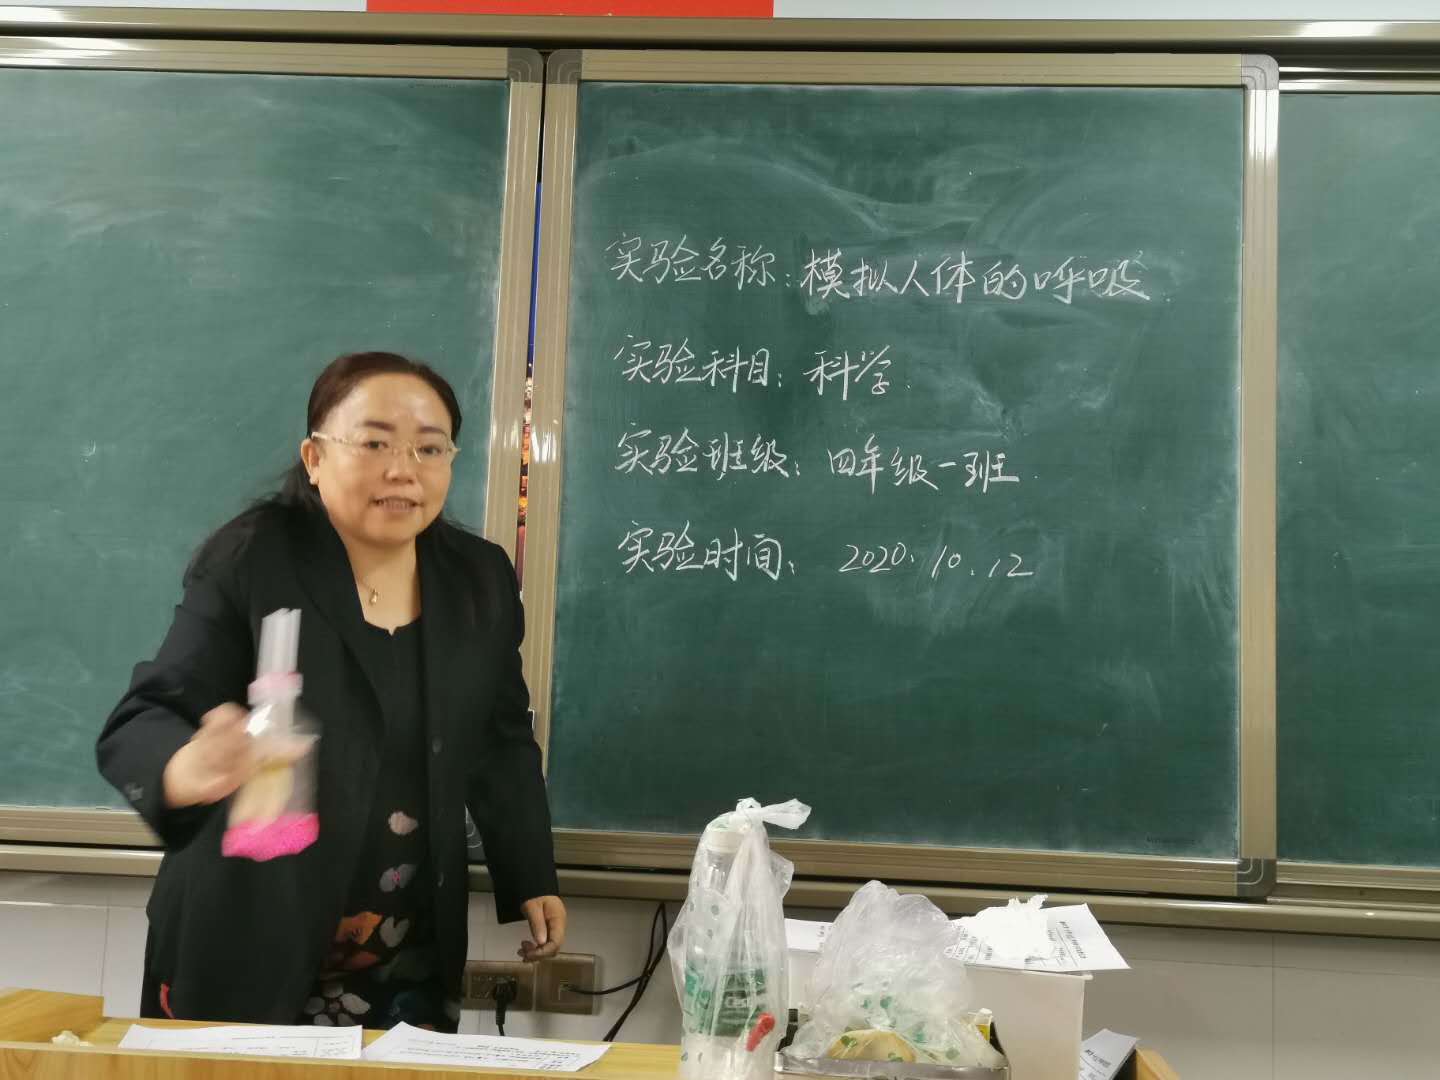 实验名称：模拟人体的呼吸
实验科目：科学
实验班级：四年级一班
实验时间：2020.10.12